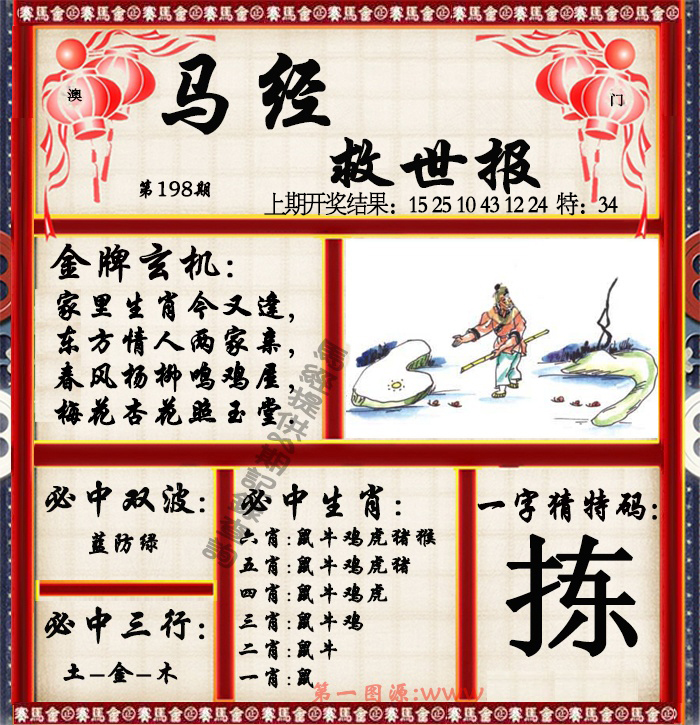 赛馬會㊣賽馬會㊣賽馬會㊣賽馬會㊣賽馬會㊣賽馬會
澳
门
马经
救世报
第198期
上期开奖结果：15 25 10 43 12 24 特：34
金牌玄机：
家里生肖今又逢，
东方情人两家亲，
春风杨柳鸣鸡屋，
梅花杏花照玉堂．
必中双波：
蓝防绿
必中三行：
土-金-木
必中生肖：
六肖：鼠牛鸡虎猪猴
五肖：鼠牛鸡虎猪
四肖：鼠牛鸡虎
三肖：鼠牛鸡
二肖：鼠牛
一肖：鼠
一字猜特码：
拣
第一图源:www